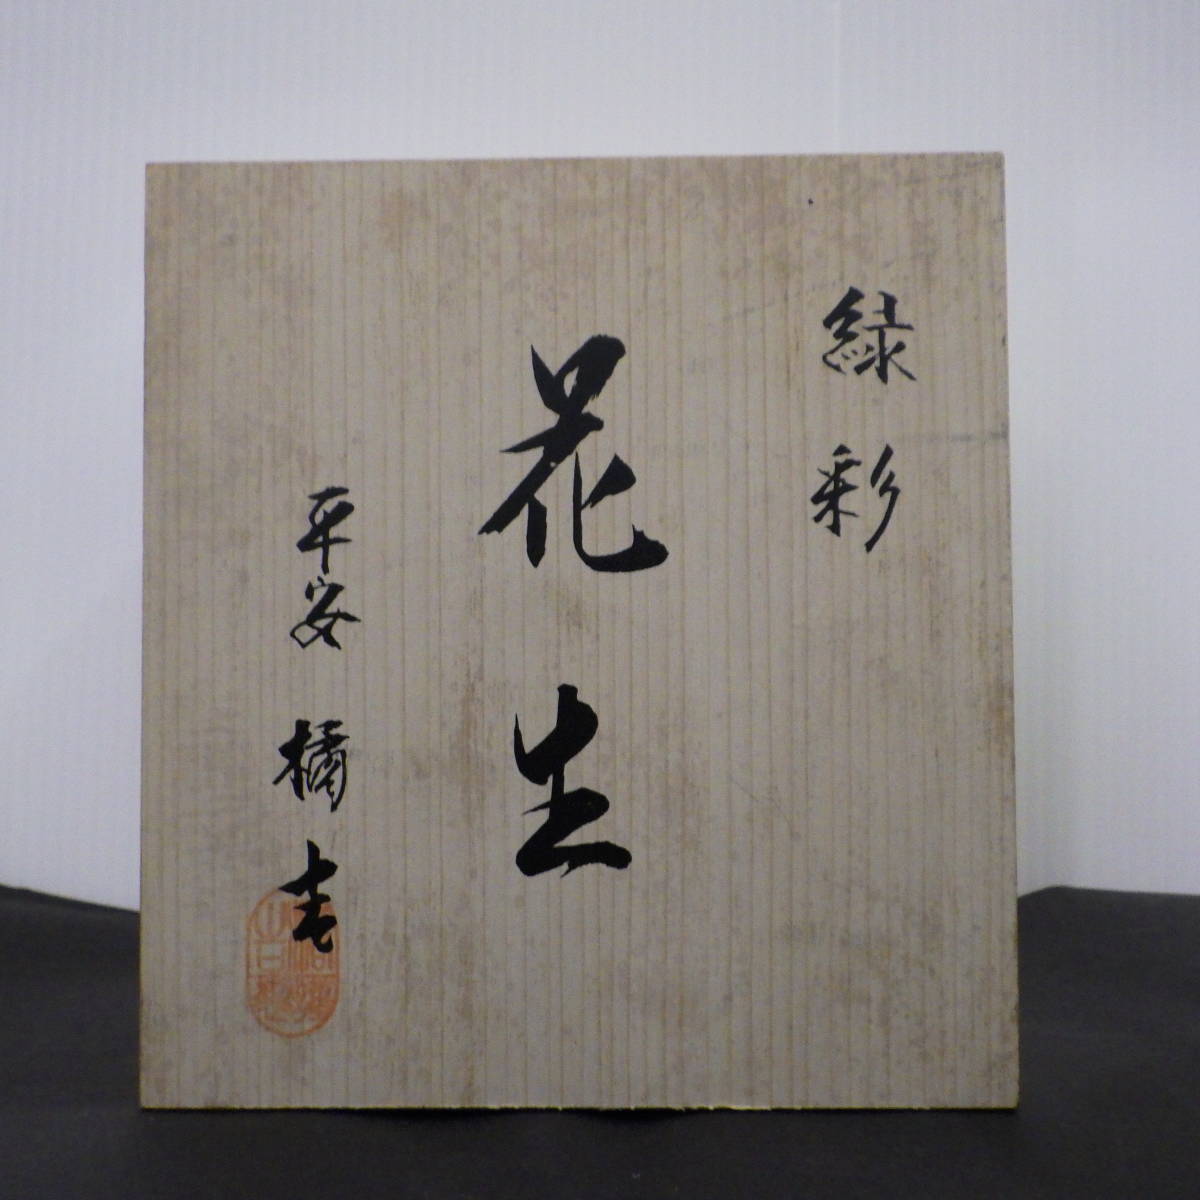 緑彩
花生
平安 橘